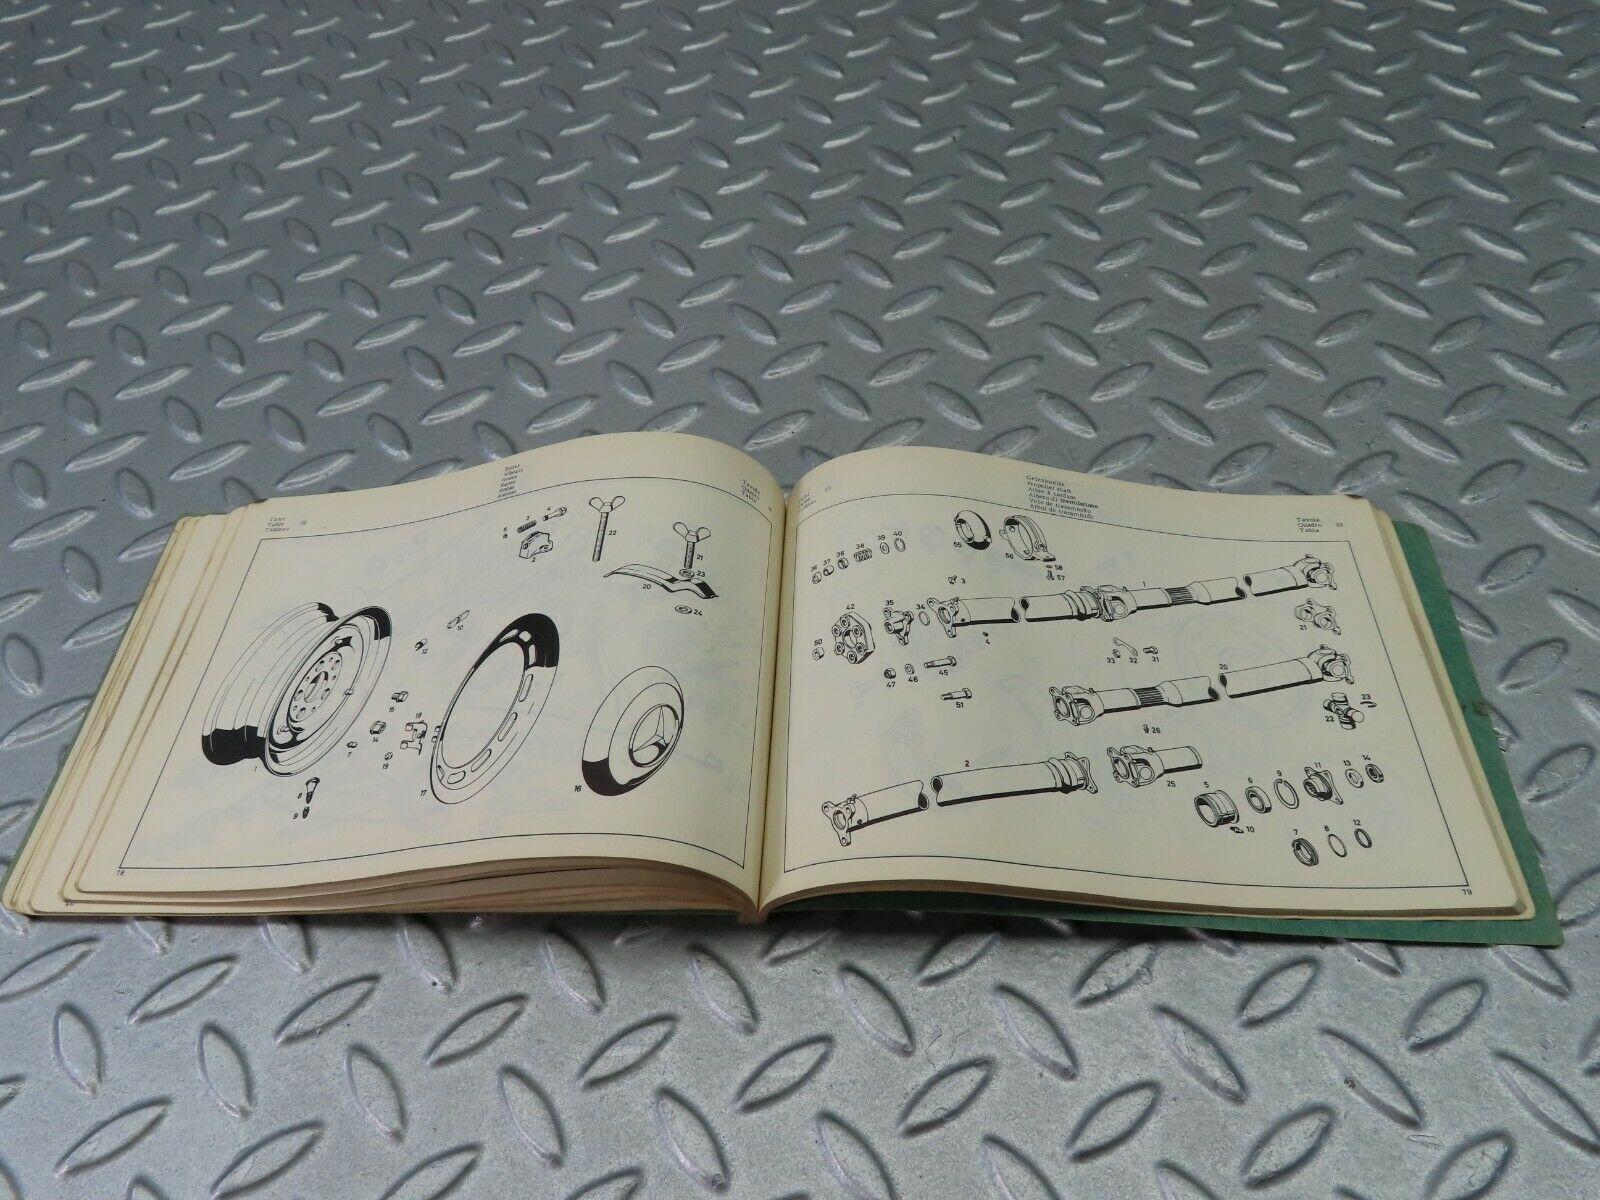 Räder
Wheels
Roues
Ruote
Rodas
Ruedas
Tafel
Table 32
Tableau
Tavola
Quadro
Tabla
5 3 4
8
2
22
21
23
20
24
10
12
15
18
14
7
19
1
17
16
6
9
78
Gelenkwelle
Propeller shaft
Arbre à cardans
Albero di trasmissione
Veio de transmissão
Arbol de transmisión
33
Tavola
Quadro 33
Tabla
36 37 38 38 39 40
55
56
58
57
3
1
42
35
34
4
21
50
33 32 31
20
47 46 45
51
23
22
26
2
25
5 6 9 11 13 14
10
7 8 12
79